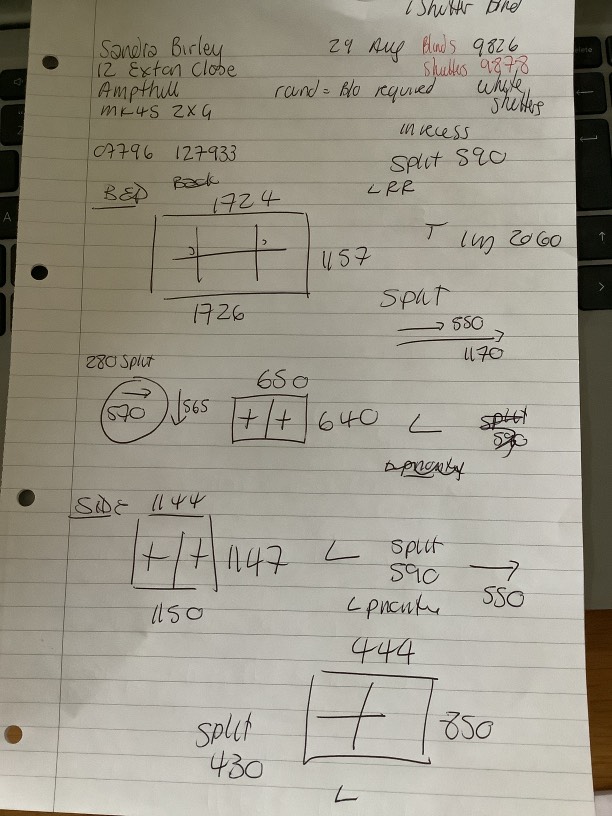 1 Shutter Blind
Sandra Birley 29 Aug Blinds 9826
12 Exton Close Shutters 9878
Ampthill rand = B/o required white
MK45 2XG shutters
in recess
07796 127933 split 590
BED LRR
1724
T 1 in 2060
1157
1726
Split
550
1170
280 Split
570 565
650
640 L
SIDE 1144
1147 L split
590
550
1150 L
444
850
split
430
L